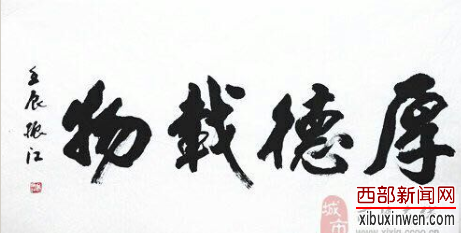 厚德載物
壬辰 振江
西部新闻网
xibuxinwen.com